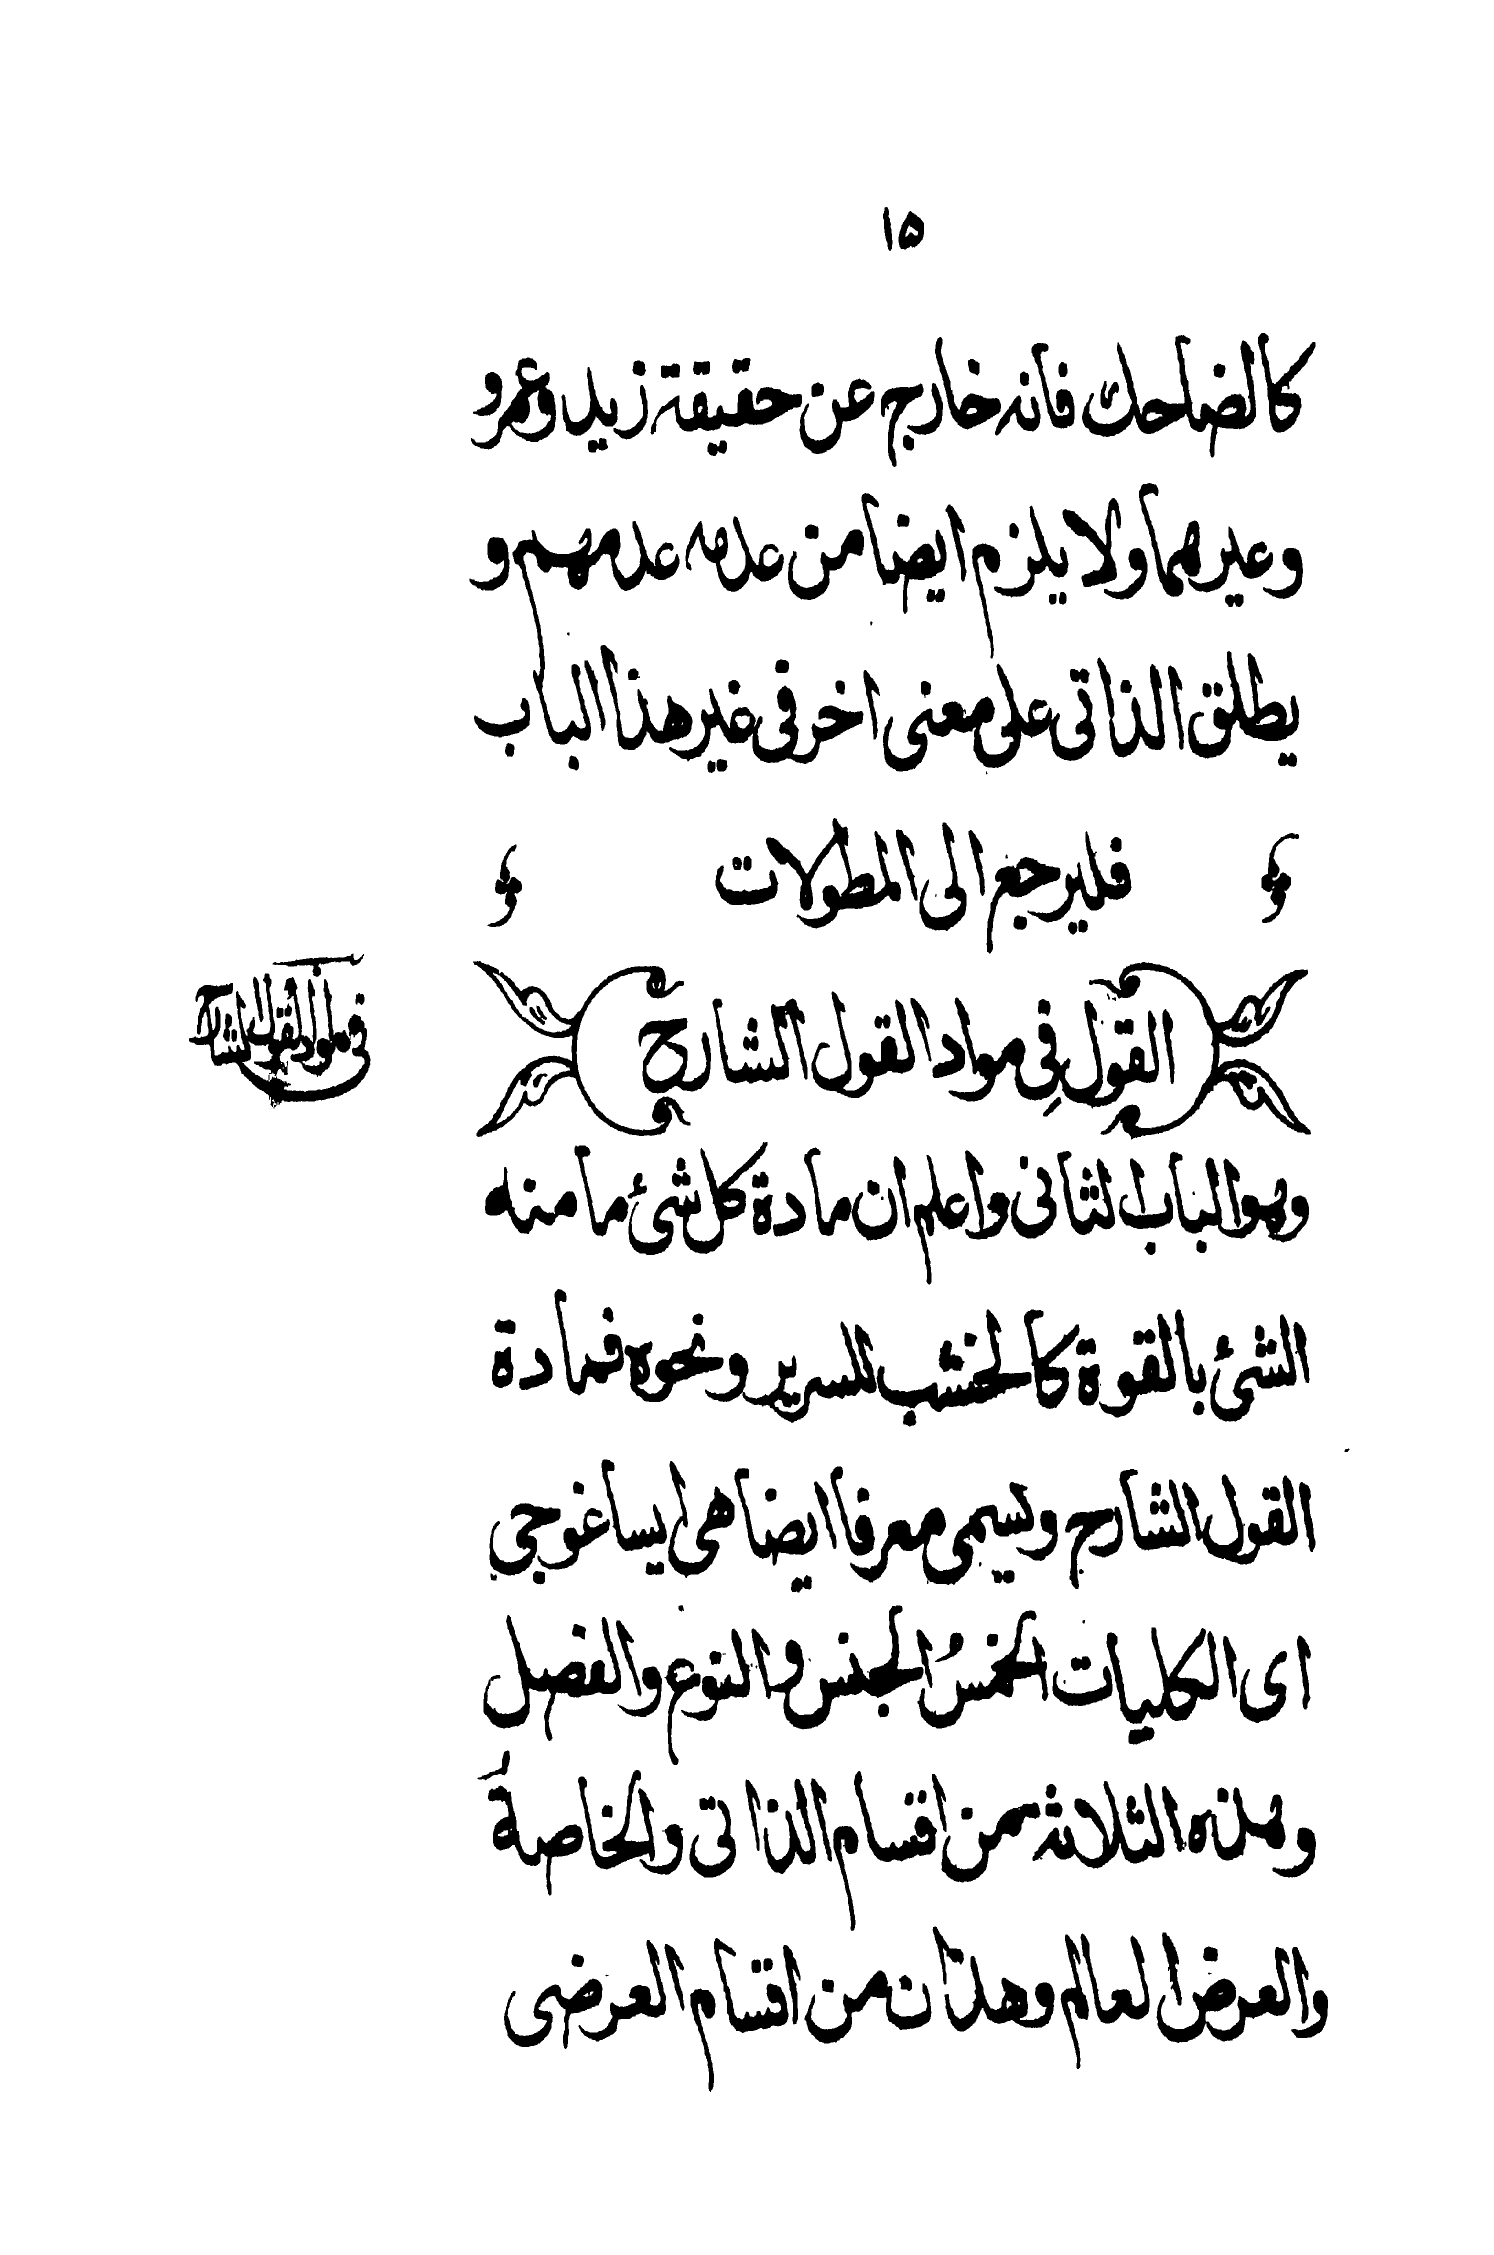 ١٥
كالضاحك فانه خارج عن حقيقة زيد وعمرو
وغيرهما ولا يلزم ايضا من عدمه عدمهم و
يطلق الذاتى على معنى اخر فى غير هذا الباب
فليرجع الى المطولات
القول فِى مواد القول الشارح
فى مواد القول الشارح
وهو الباب الثانى واعلم ان مادة كل شئ ما منه
الشئ بالقوة كالخشب للسرير ونحوه فمادة
القول الشارح ويسمى معرفا ايضا هى ايساغوجى
اى الكليات الخمسُ الجنس والنوع والفصل
وهذه الثلاثة من اقسام الذاتى والخاصةَ
والعرض العام وهذان من اقسام العرضى